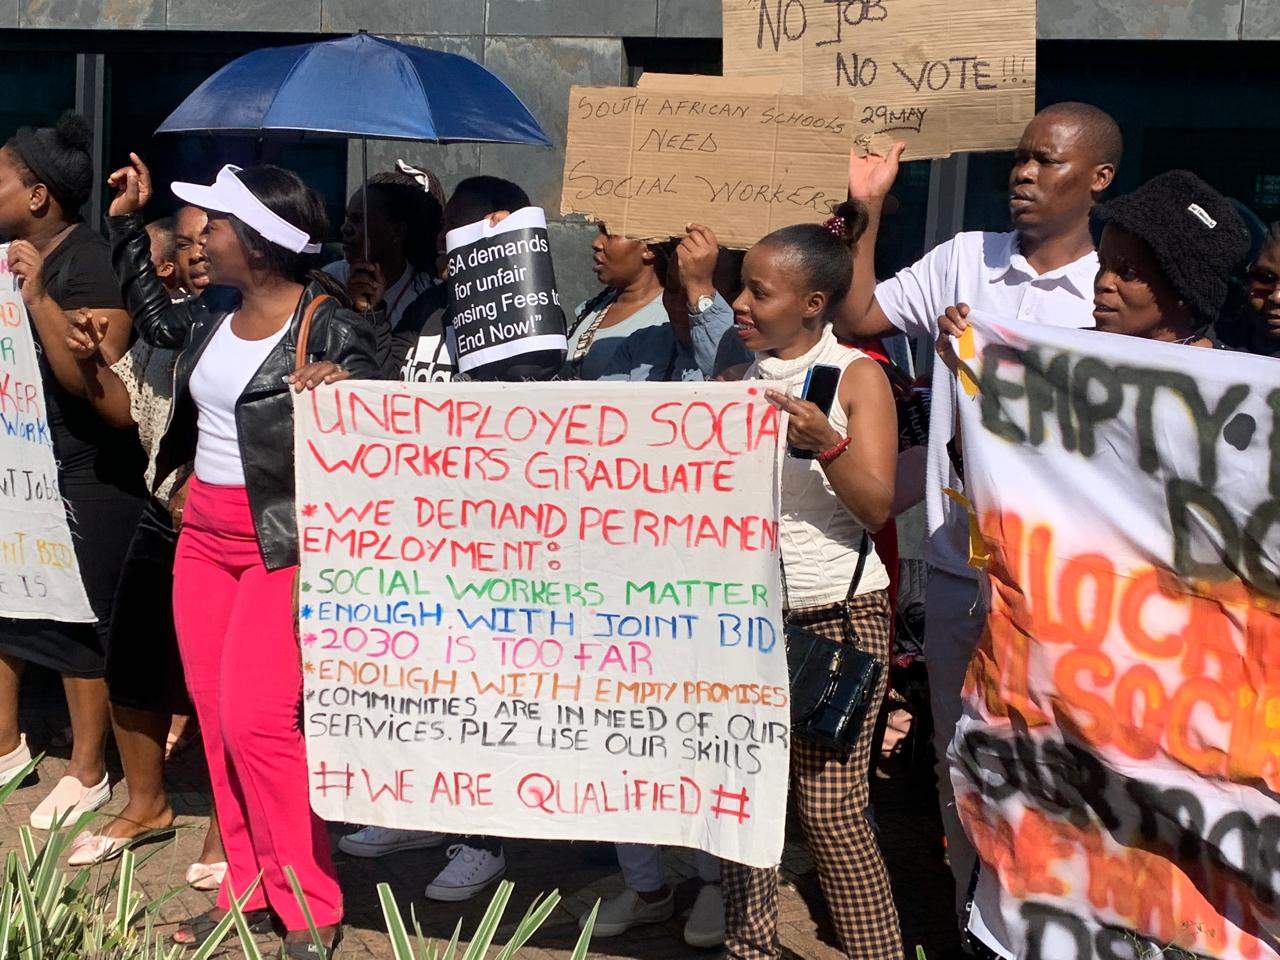 "NO JOB
NO VOTE!!!
29MAY
SOUTH AFRICAN SCHOOLS
NEED
SOCIAL WORKERS
SA demands
for unfair
ensing Fees to
End Now!"
adidas
UNEMPLOYED SOCIA
WORKERS GRADUATE
*WE DEMAND PERMANEN
EMPLOYMENT:
*SOCIAL WORKERS MATTER
*ENOUGH WITH JOINT BID
*2030 IS TOO FAR
*ENOUGH WITH EMPTY PROMISES
*COMMUNITIES ARE IN NEED OF OUR
SERVICES. PLZ USE OUR SKILLS
#WE ARE QUALiFiED#
KER
WORK
Jobs
NT BID
IS
EMPTY.
DO
LOCA
SOCIA
OUR
WE WAN
DS